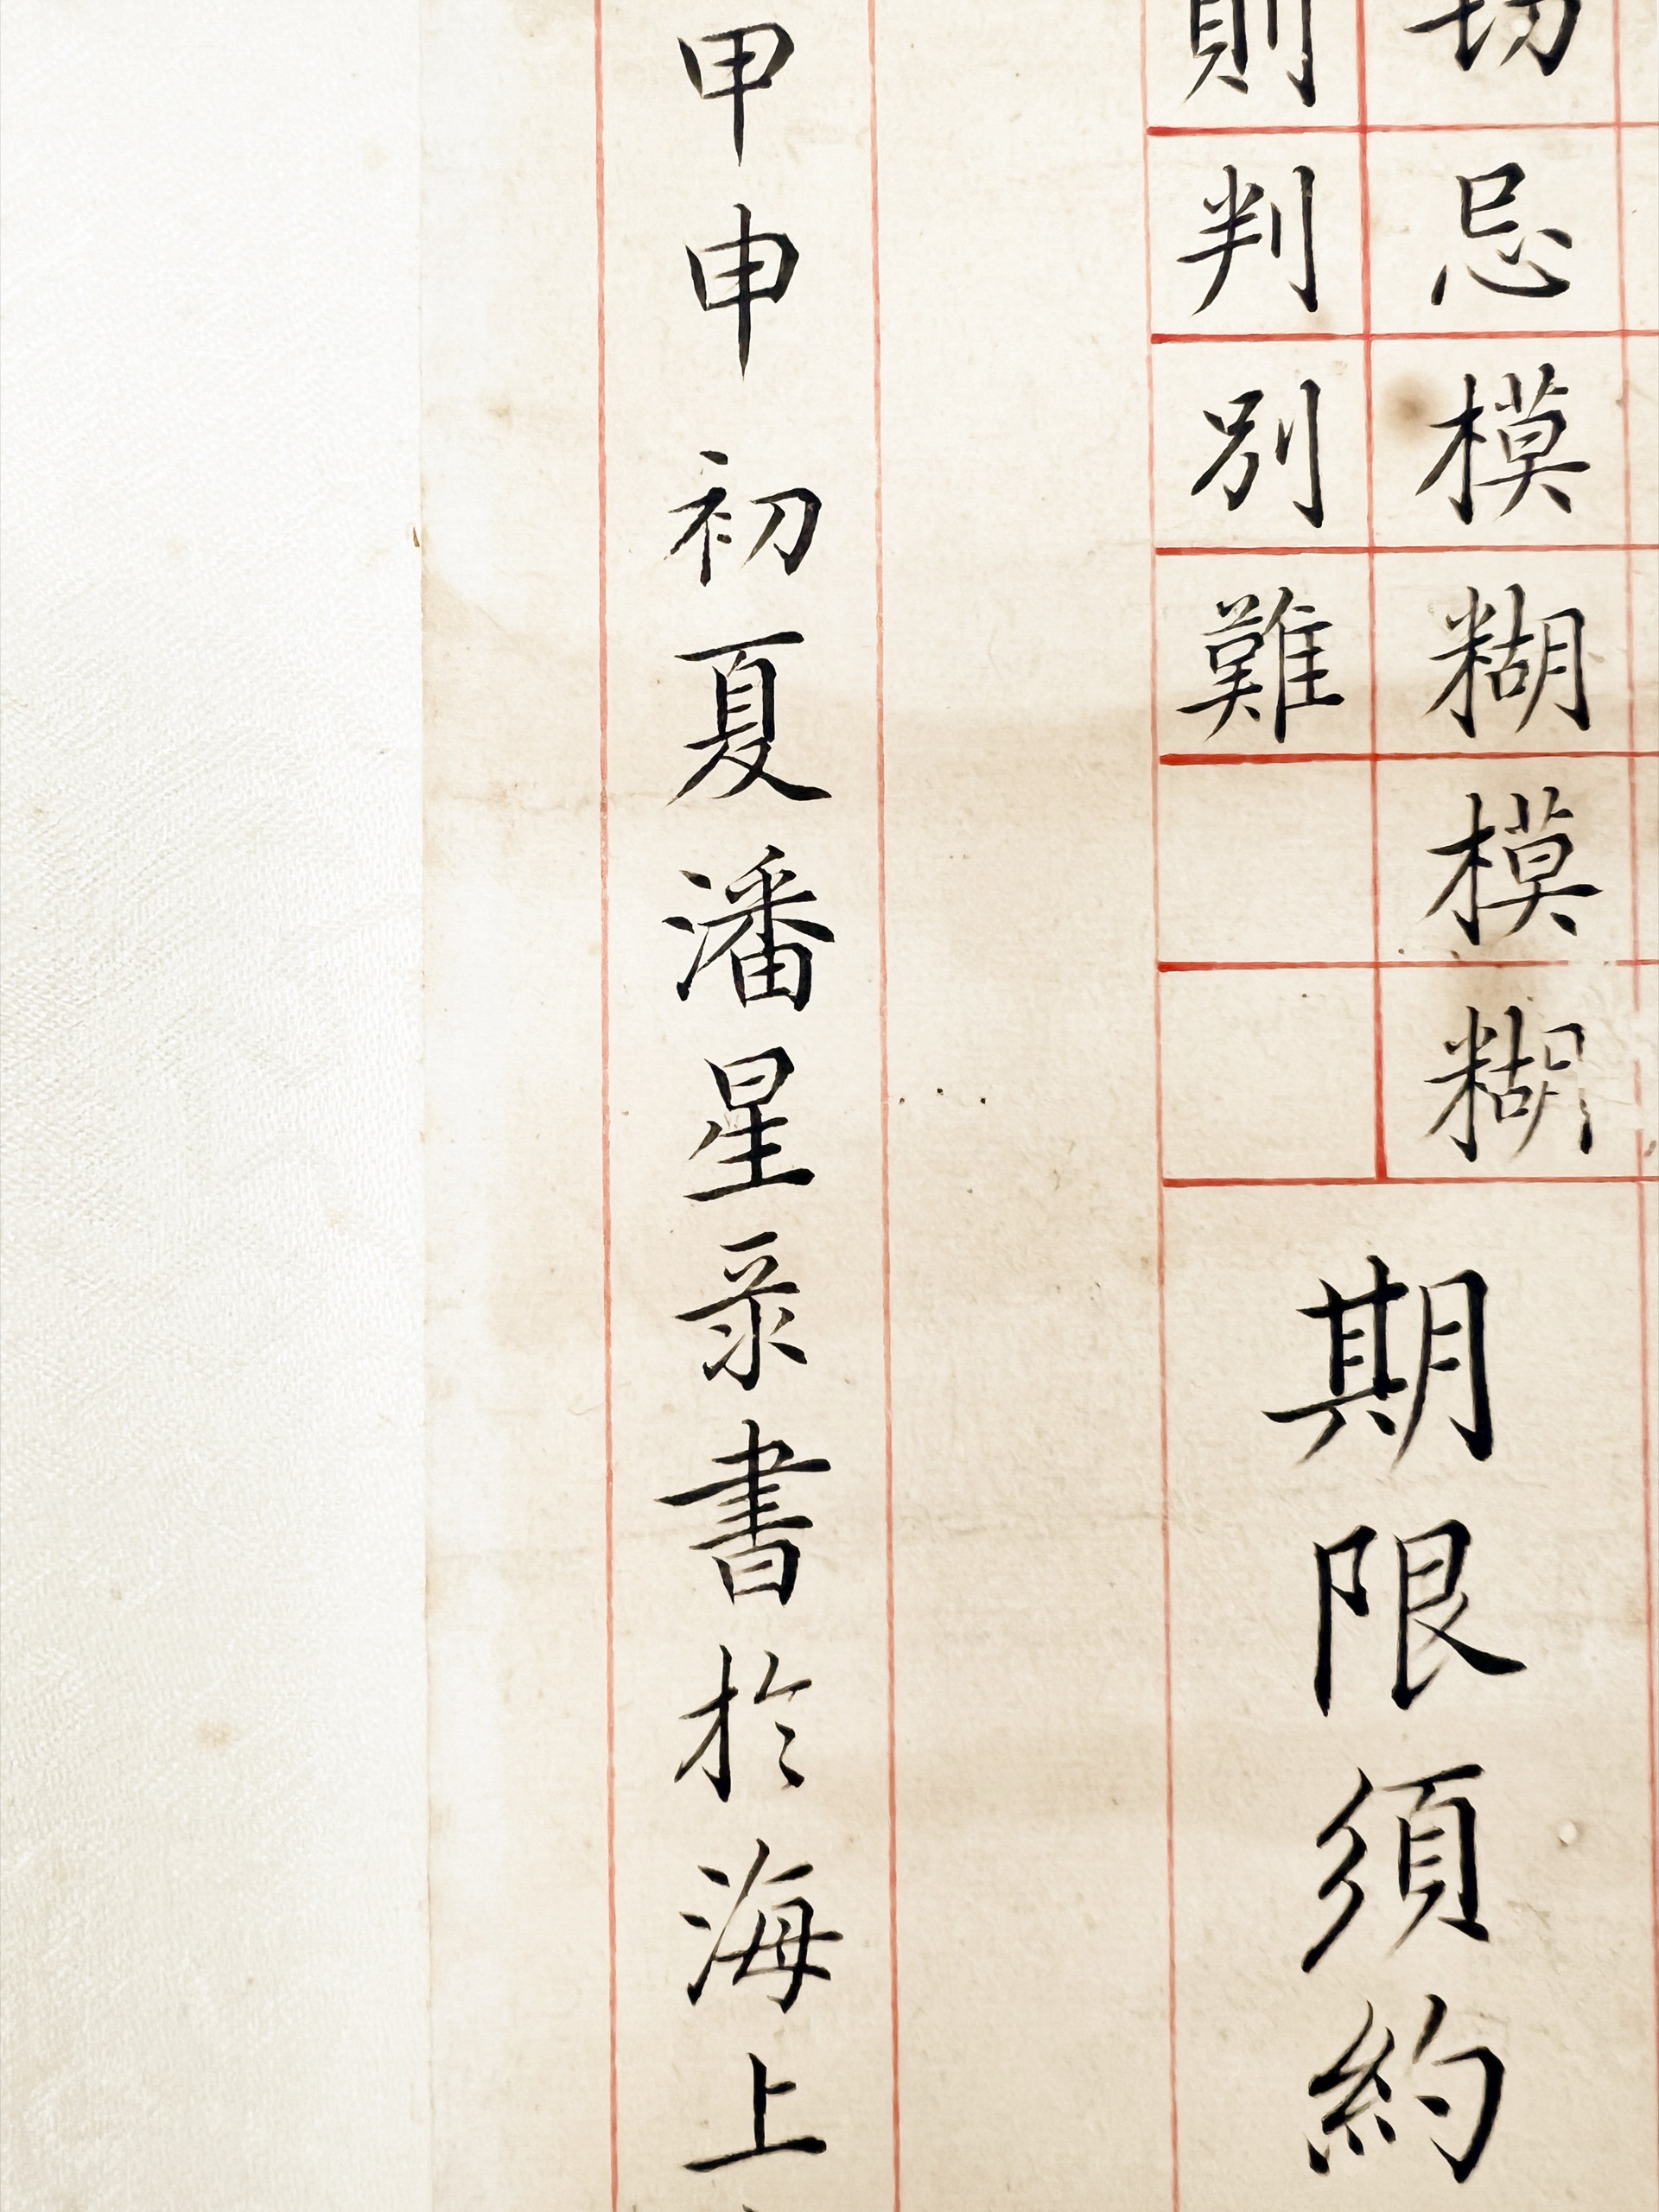 切忌模糊模糊
則判別難
期限須約
甲申初夏潘星录書於海上